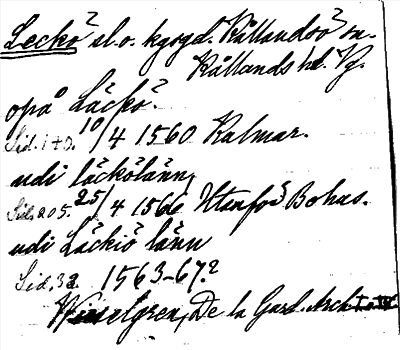 Leckö sl.o. kgsgd. Kållandsö sn.
Kållands hd. Vg.
opå Läckö.
Sid. 170. 10/4 1560 Kalmar.
udi läckölänn,
Sid. 205. 25/4 1566 Utanför Bohus.
udi Läckiö länn
Sid. 32. 1563-67?
Wieselgren, De la Gard. Arch.